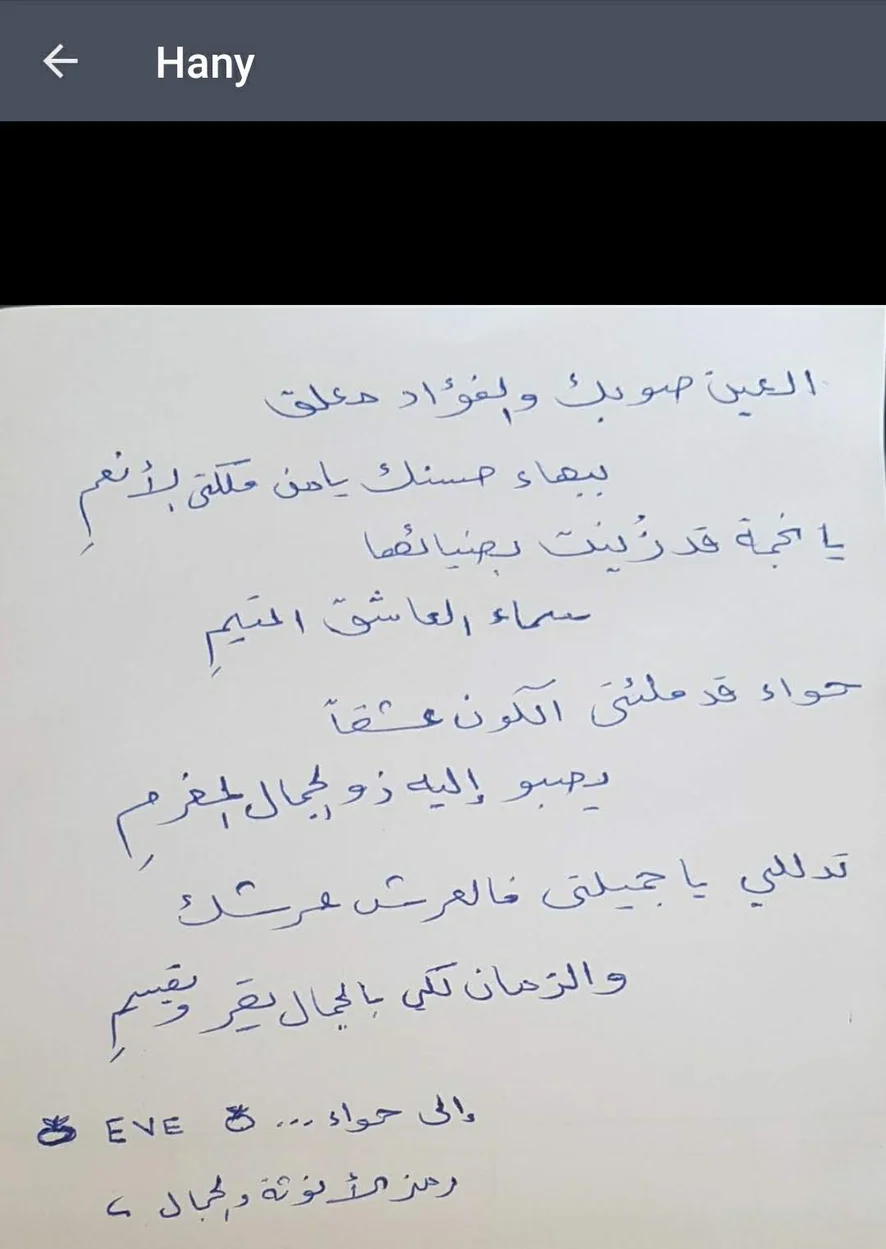 Hany
العين صوبك والفؤاد معلق
ببهاء حسنك يامن ملكتي الأنعمِ
يا نجمة قد زُينت بضيائها
سماء العاشق المتيمِ
حواء قد ملئتي الكون عشقاً
يصبو إليه ذو الجمال المغرمِ
تدللي يا جميلتي فالعرش عرشك
والزمان لكي بالجمال يقر ويقسمِ
إلى حواء ... EVE
رمز الأنوثة والجمال